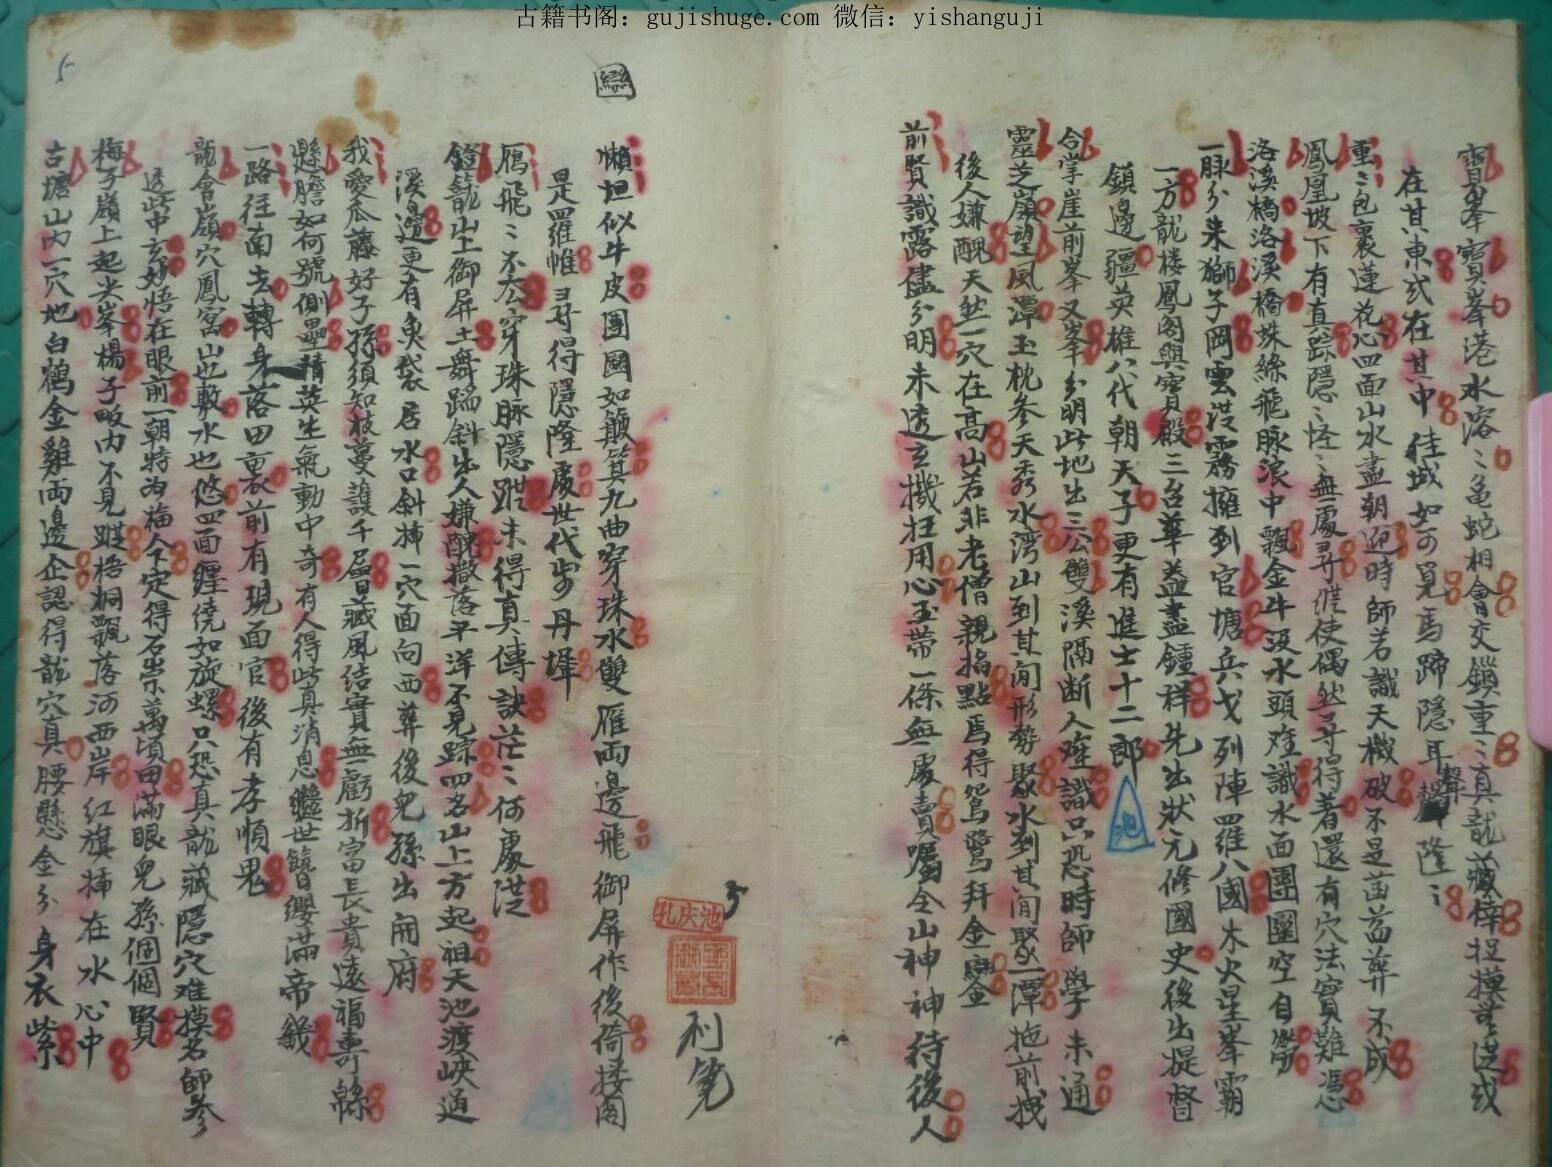 古籍书阁：gujishuge.com 微信：yishanguji
寶峯寶峯港水溶〻亀蛇相會交鎖重〻真龍藏倖捉摸
在其東或在其中佳城如可覓馬蹄隱耳聲隆〻
重〻包裹蓮花心四面山水盡朝迎時師若識天機破不是菡萏葬不成
鳳凰坡下有真踪隱〻怪〻無處尋縱使偶然尋得著還有穴法實難憑
洛溪橋洛溪橋蛛絲龍脉浪中飄金牛汲水頭难識水面團團空自勞
一脉分来獅子岡雲從霧擁到官塘兵戈列陣羅八國木火星峯霸
一方龍楼鳳阁與寳殿三台華盖盡鍾祥先出狀元修國史後出提督
鎮邊疆英雄八代朝天子更有進士十二郎
池
合掌崖前峯又峯分明此地出三公雙溪隔断人难識只恐時師學未通
靈芝扇望凤潭玉枕参天秀水湾山到其间形势聚水到其间聚一潭地前戏
後人嫌醜天然一穴在高山若非老僧親指點焉得鴛鴦拜金鑾
前賢識露儘分明未透玄機枉用心玉帶一條無處賣囑全山神神待後人
5
懶坦似牛皮團團如簸箕九曲穿珠水雙雁兩邊飛御屏作後倚接阁
是羅帷尋得隱隆處世代步丹墀
鴈飛〻不去穿珠脉隱跡未得真傳訣茫〻何處從
鐙龍山上御屏土舞踏斜出人嫌醜撒落平洋不見踪四名山上方起祖天池渡峽通
溪邊更有魚袋居水口斜插一穴面向西葬後兒孫出開府
我爱瓜藤好子孫須知枝蔓護千層藏風结實無虧折富貴遠福壽綿
懸膽如何號側壘精英生氣動中奇有人得此真消息繼世簪纓滿帝畿
一路往南去轉身落田裏前有現面官後有孝順鬼
龍會嶺穴鳳宮山也數水也悠四面纏绕如旋螺只恐真龍藏隱穴难摸名師参
透此中玄妙悟在眼前一朝特为福人下定得石崇萬頃田滿眼兒孫個個賢
梅子嶺上起尖峯楊子畈内不見踪梧桐飄落河西岸红旗插在水心中
古塘山内一穴地白鶴金雞两邊企認得龍穴真腰懸金分身衣紫
5
池庆